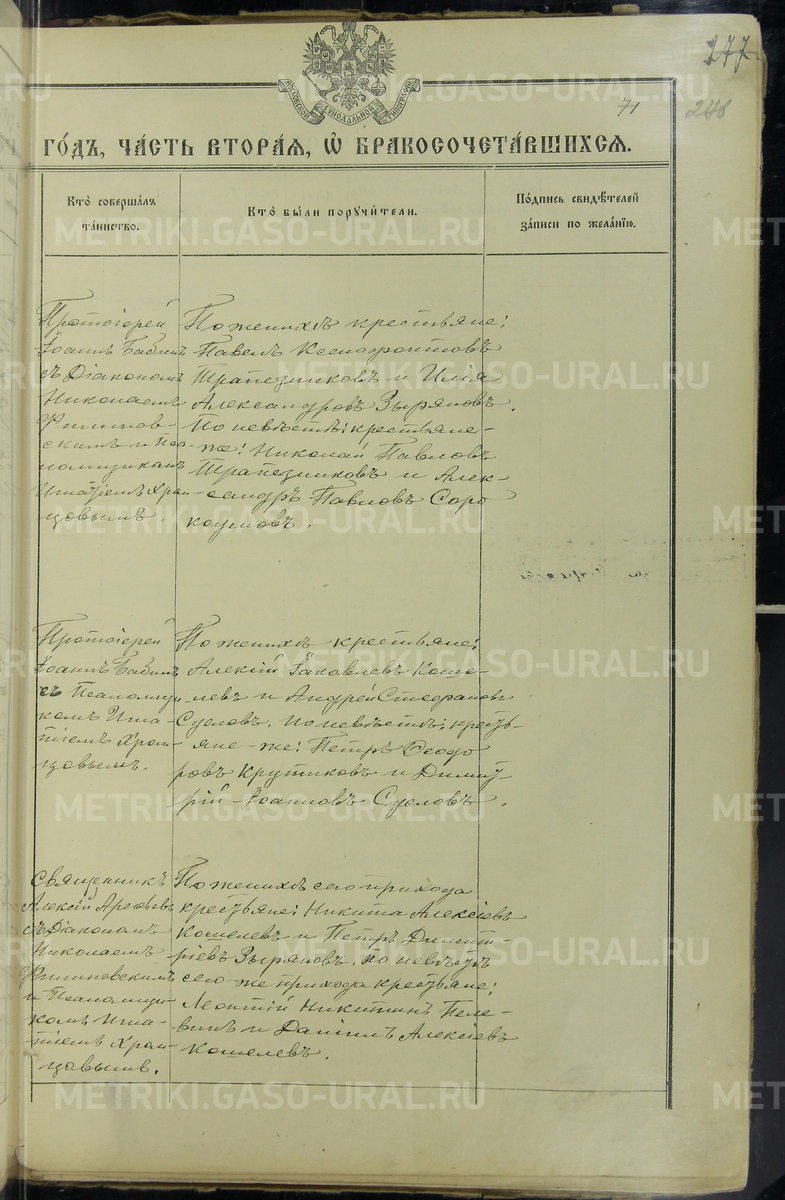 277
71
248
МОСКОВСКОЙ СѴНОДАЛЬНОЙ ТИПОГРАФІИ
ГО́ДЪ, ЧА́СТЬ ВТОРА́Я, Ѽ БРАКОСОЧЕТА́ВШИХСЯ.
Кто̀ соверша́лъ
та́инство.
Кто̀ бы́ли поручи́тели.
По́дпись свидѣ́телей
за́писи по жела́нію.
Протоіерей
Іоаннъ Бабинъ
съ Діакономъ
Николаемъ
Филинов-
скимъ и Пса-
ломщикомъ
Игнатіемъ Храм-
цовымъ.
По женихѣ крестьяне:
Павелъ Ксенофонтовъ
Трапезниковъ и Илія
Александровъ Зыряновъ.
По невѣстѣ: крестьяне-
же: Николай Павловъ
Трапезниковъ и Алек-
сандръ Павловъ Соро
коумовъ.
Протоіерей
Іоаннъ Бабинъ
съ Псаломщи-
комъ Игна-
тіемъ Храм-
цовымъ.
По женихѣ крестьяне:
Алексій Іаковлевъ Коше-
левъ и Андрей Стефановъ
Сусловъ. По невѣстѣ: крестьь-
яне-же: Петръ Ѳеодо
ровъ Крутиковъ и Дими-
трій Іоанновъ Сусловъ.
Священникъ
Алексій Арефьевъ
съ Діакономъ
Николаемъ
Филиновскимъ
и Псаломщи-
комъ Игна-
тіемъ Храм-
цовымъ.
По женихѣ сего прихода
крестьяне: Никита Алексіевъ
Кошелевъ и Петръ Димит-
ріевъ Зыряновъ. По невѣстѣ
сего же прихода крестьяне:
Леонтій Никитинъ Пеле-
винъ и Даніилъ Алексіевъ
Кошелевъ.
METRIKI.GASO-URAL.RU